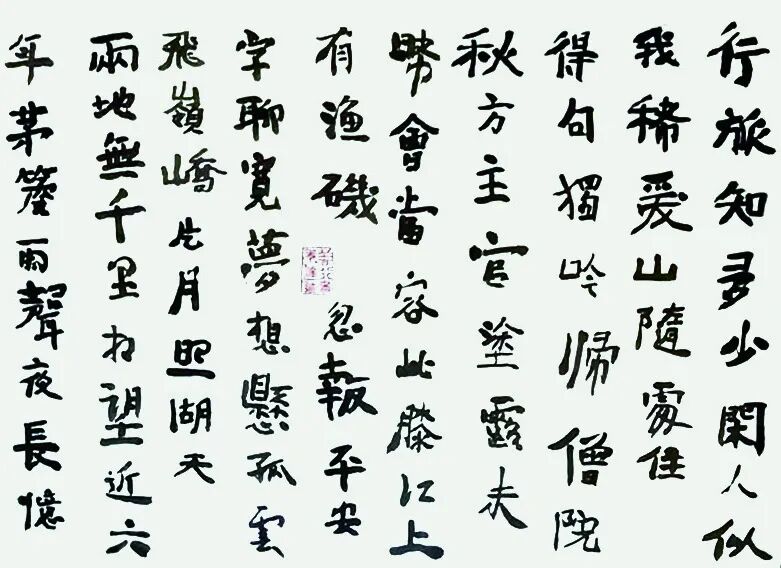 行旅知多少閑人似
我稀爱山隨處住
得句獨吟帰僧院
秋方主官塗露未
晞會當容此滕江上
有漁磯 忽報平安
字聊寬夢想懸孤雲
飛嶺嶠片月照湖天
兩地無千里相望近六
年茅簷雨聲夜長憶